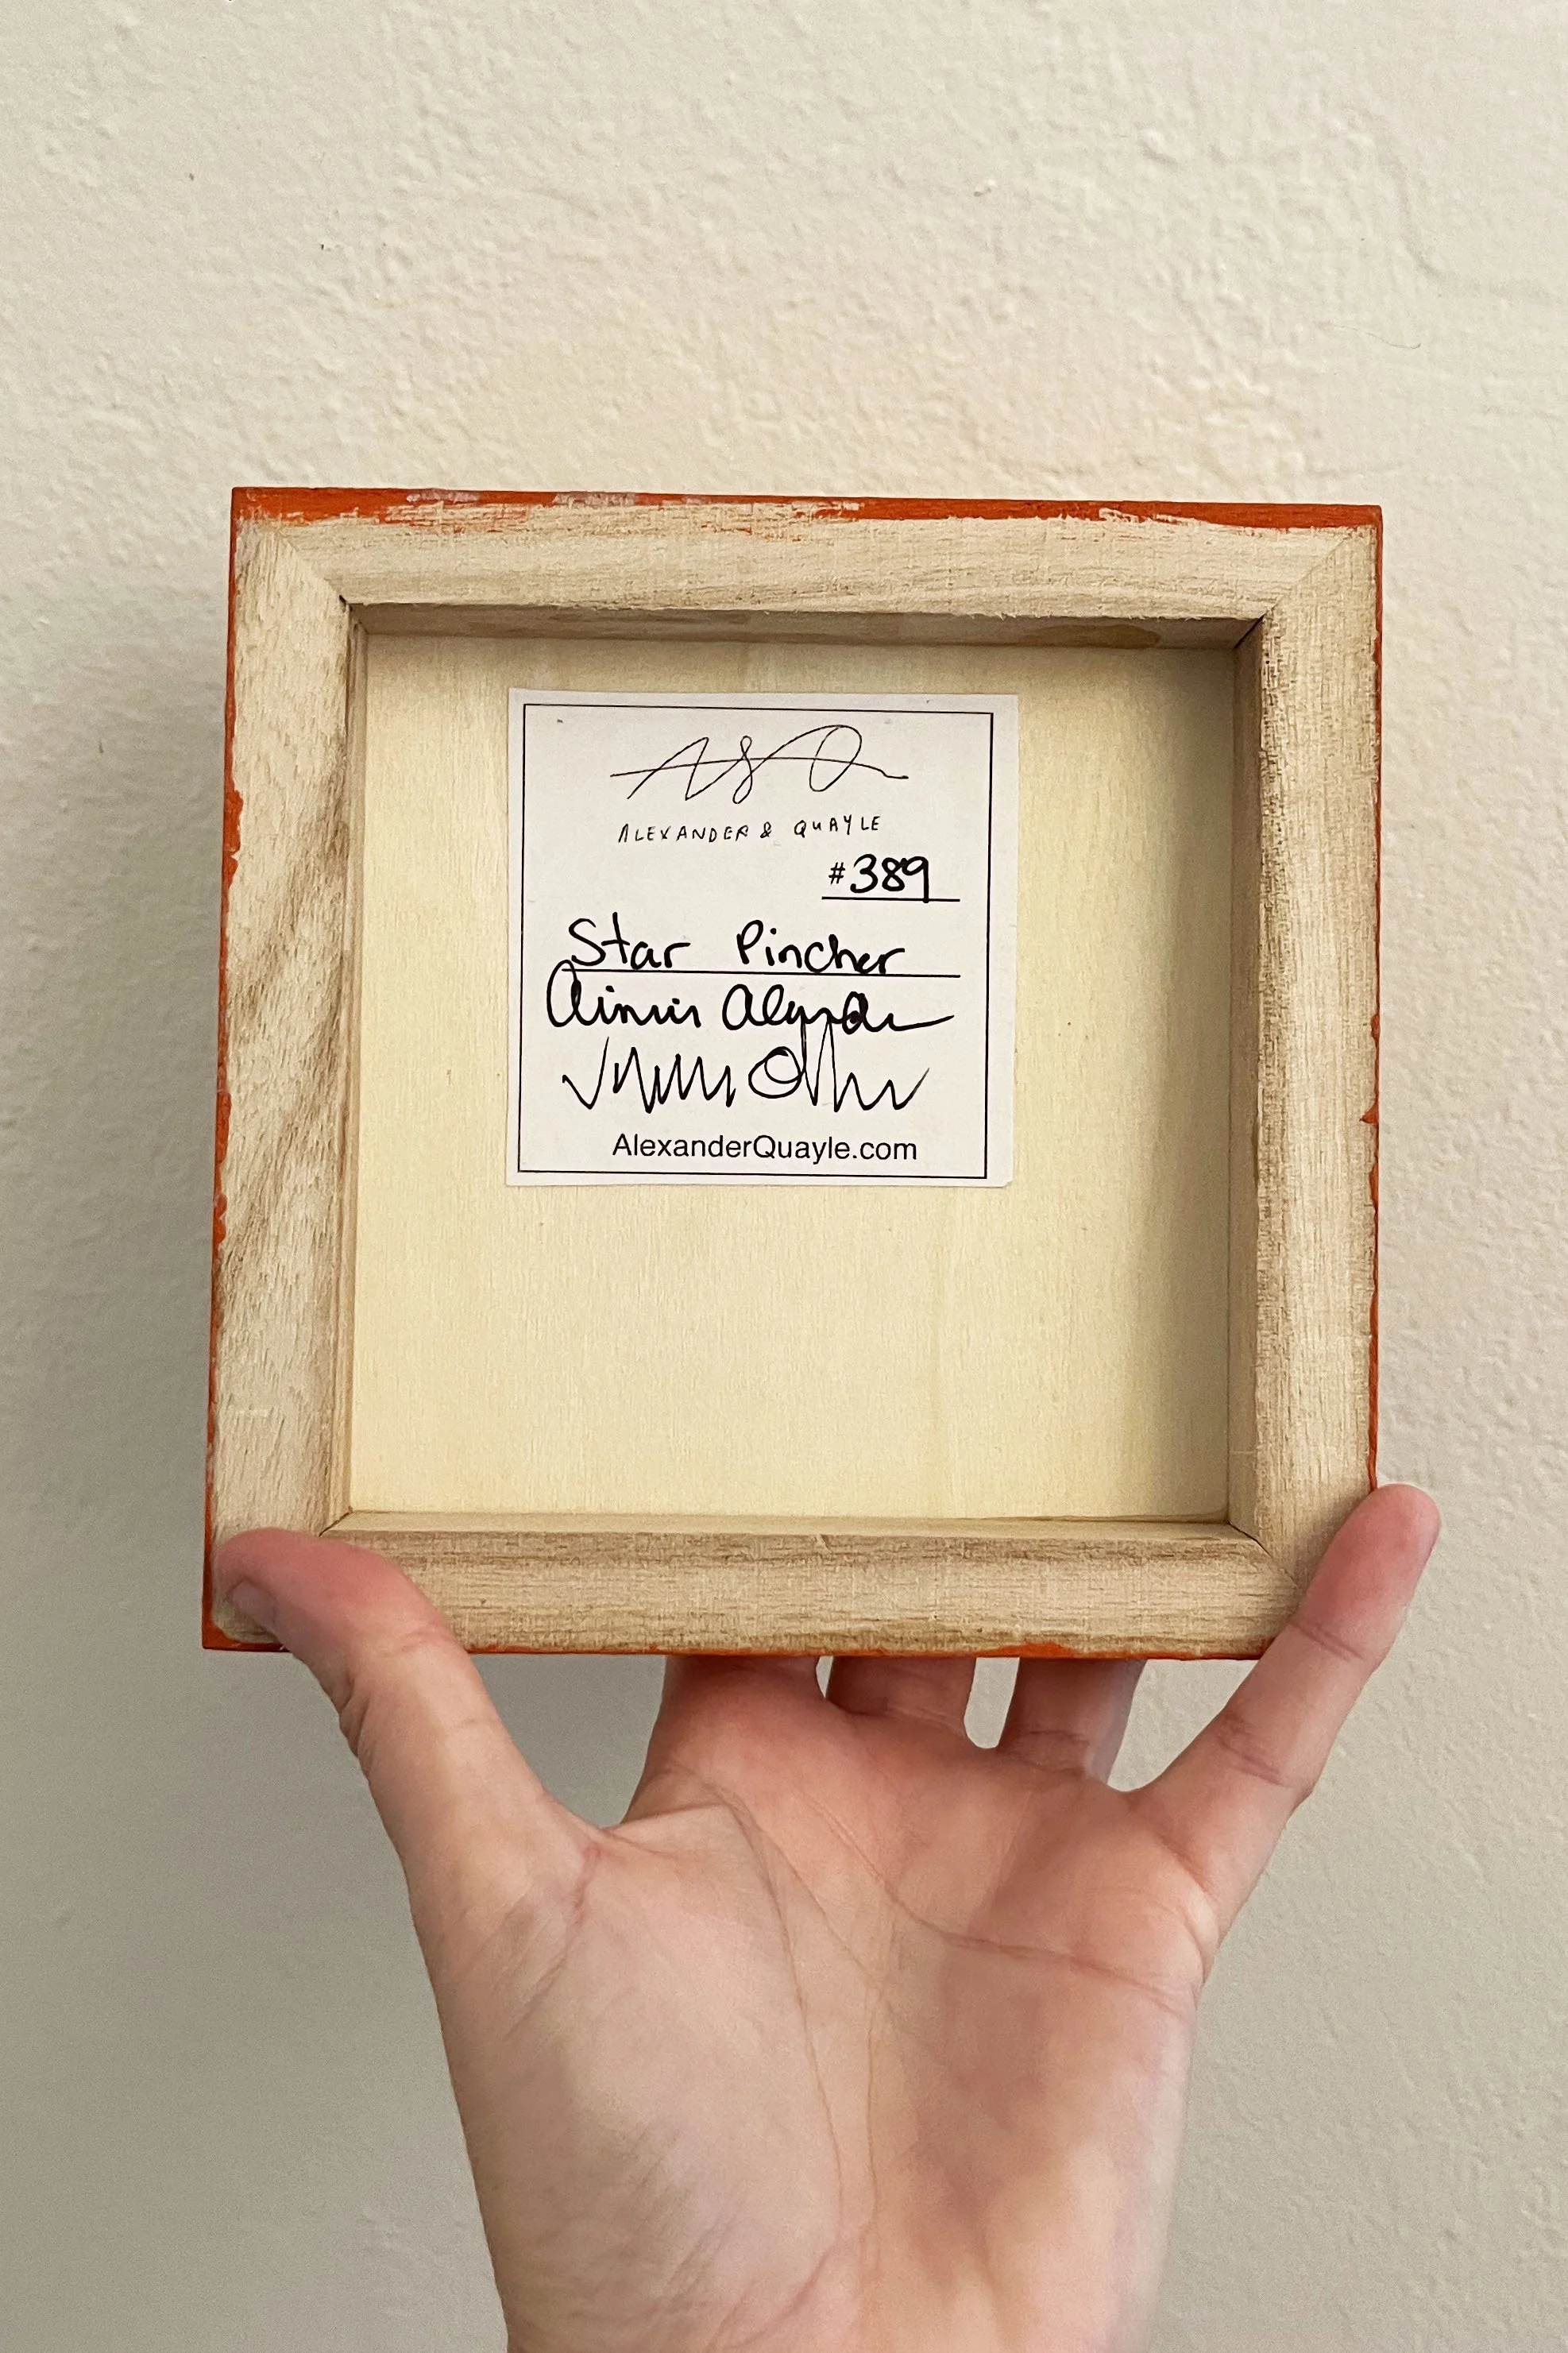 A&Q
ALEXANDER & QUAYLE
#389
Star Pincher
AlexanderQuayle.com